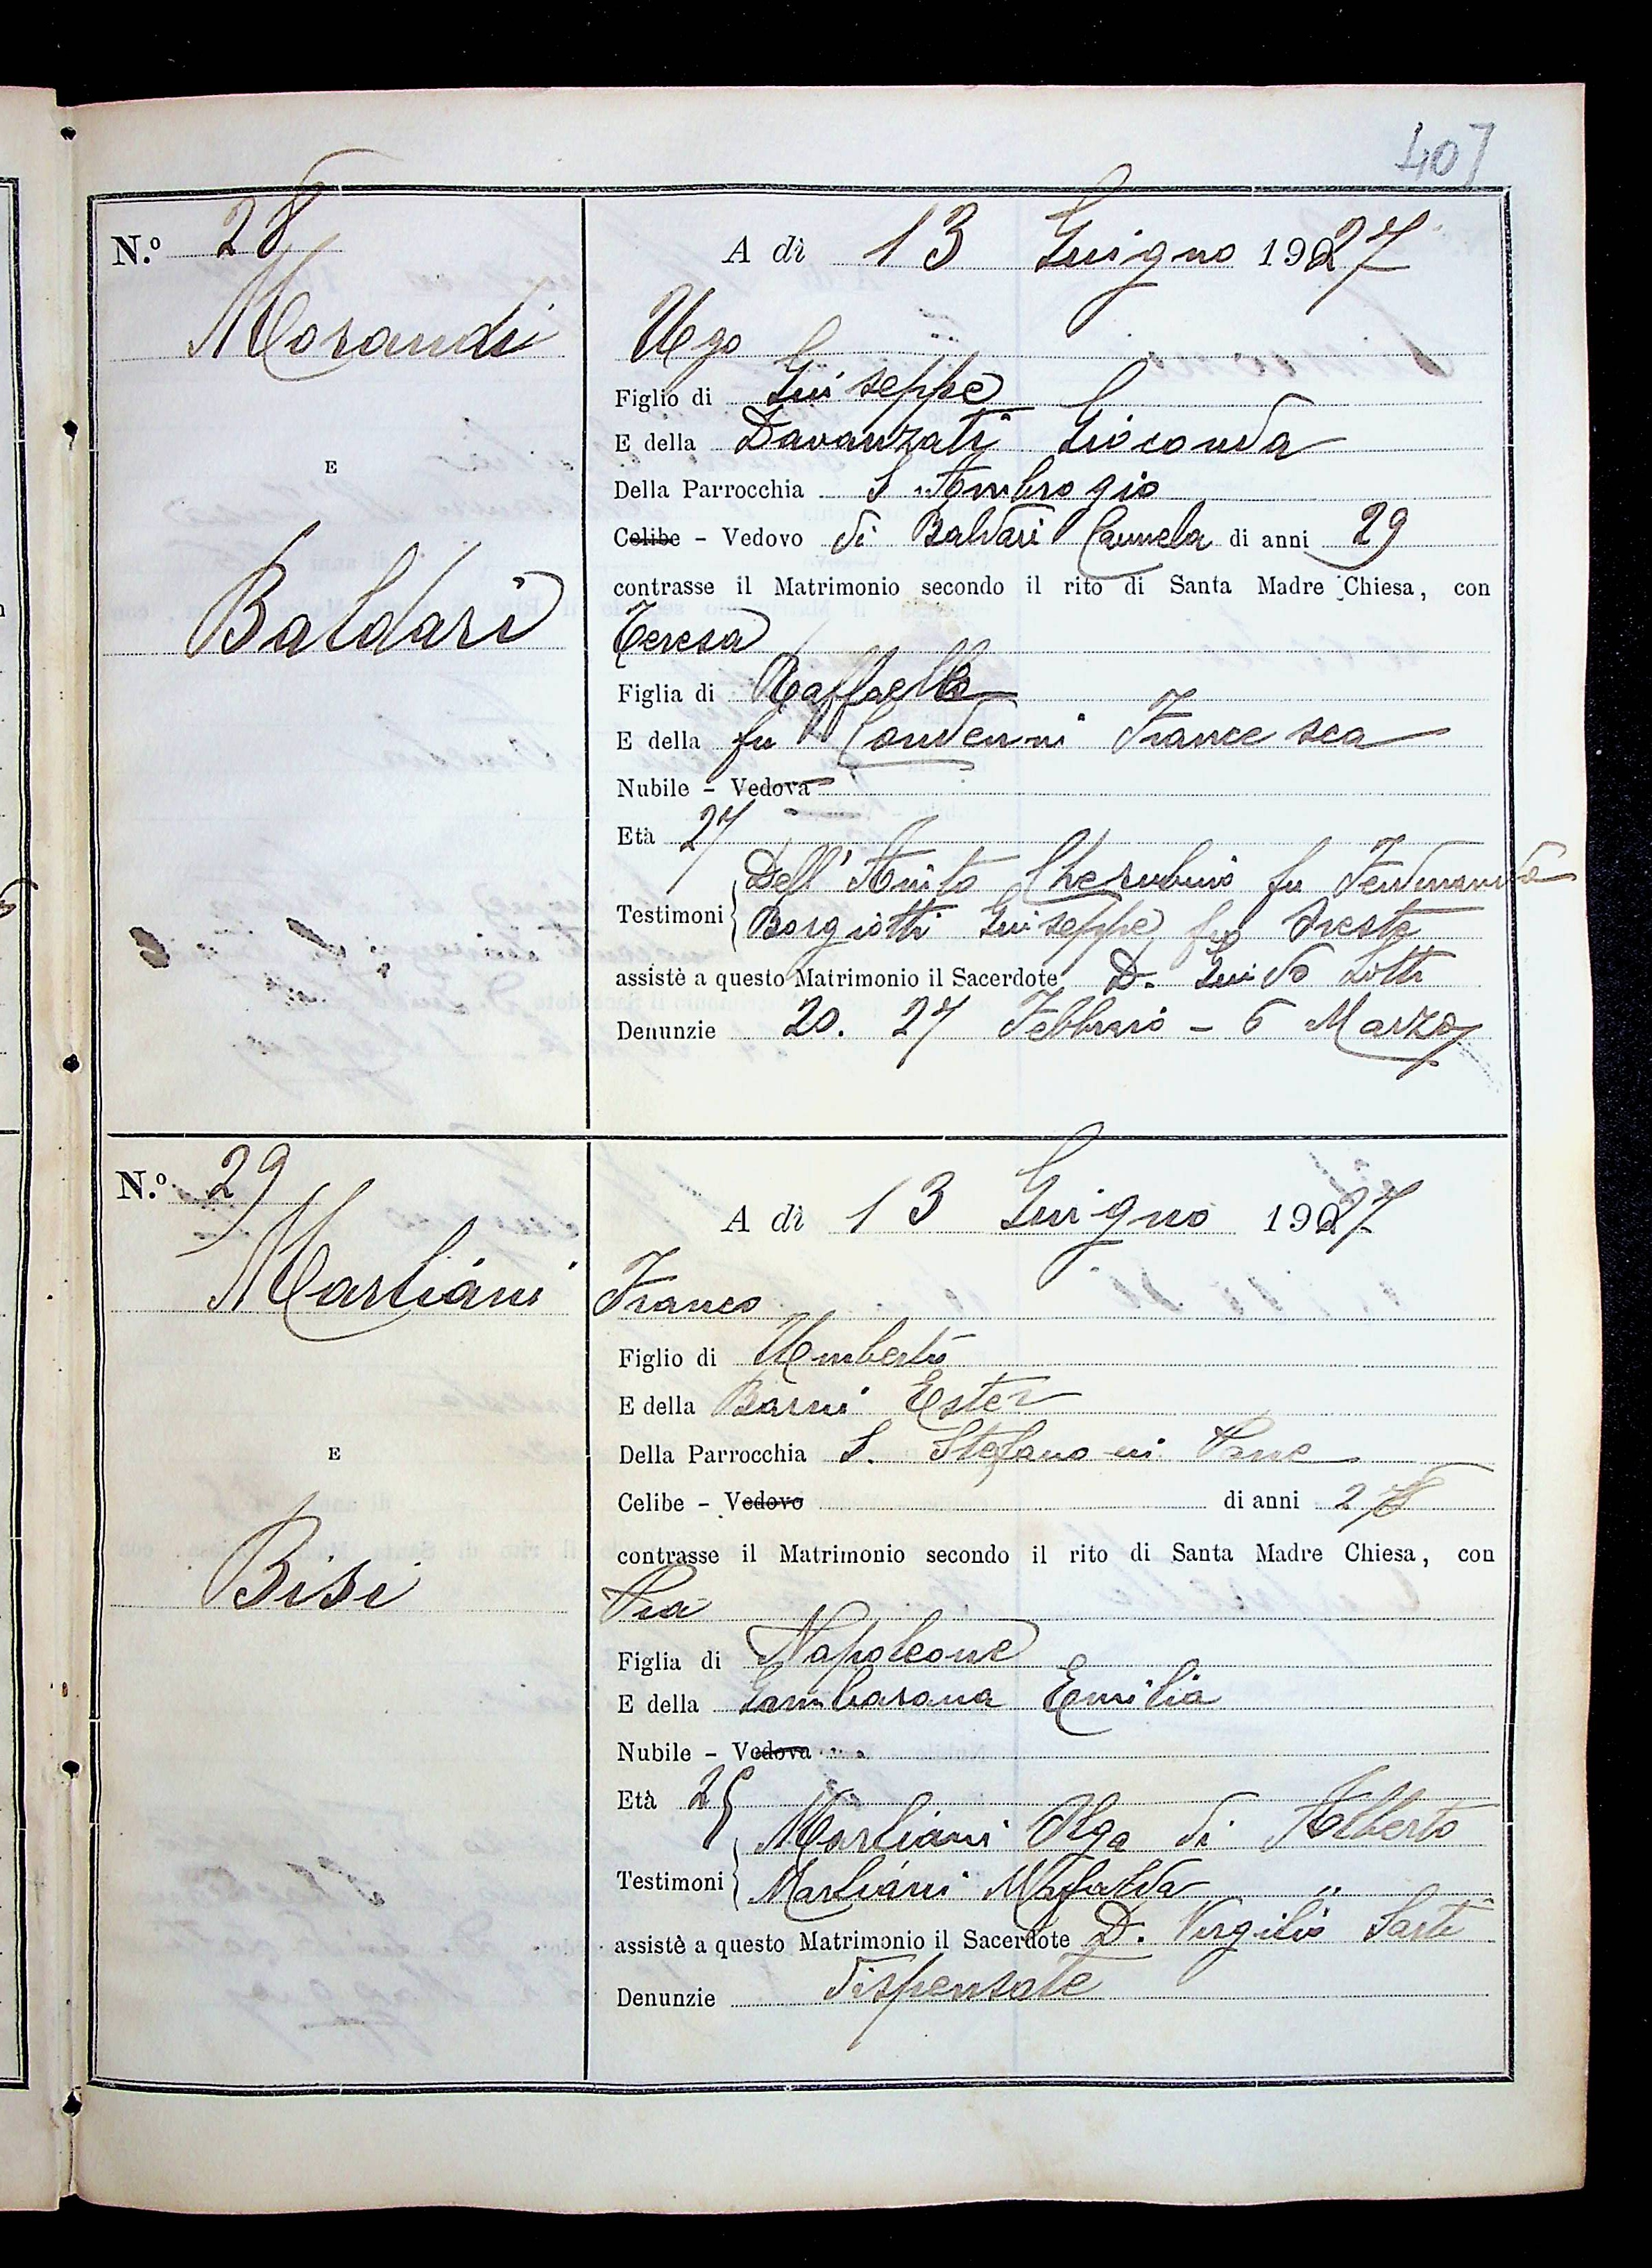 [40]
N.º 28
Morandi
E
Baldari
A dì 13 Giugno 1927
Ugo
Figlio di Giuseppe
E della Davanzati Gioconda
Della Parrocchia S. Ambrogio
Celibe - Vedovo di Baldari Carmela di anni 29
contrasse il Matrimonio secondo il rito di Santa Madre Chiesa, con
Teresa
Figlia di Raffaello
E della fu Condenni Francesca
Nubile - Vedova
Età 27
Testimoni Dell'Amito Cherubino fu Ferdinando
Borgiotti Giuseppe fu Oreste
assistè a questo Matrimonio il Sacerdote D. Guido Lotti
Denunzie 20. 27 Febbraio - 6 Marzo
N.º 29
Marliani
E
Bisi
A dì 13 Giugno 1927
Franco
Figlio di Umberto
E della Barni Ester
Della Parrocchia S. Stefano in Pane
Celibe - Vedovo di anni 28
contrasse il Matrimonio secondo il rito di Santa Madre Chiesa, con
Pia
Figlia di Napoleone
E della Gambarana Emilia
Nubile - Vedova
Età 25
Testimoni Marliani Olga di Alberto
Marliani Mafalda "
assistè a questo Matrimonio il Sacerdote D. Virgilio Sarti
Denunzie dispensate